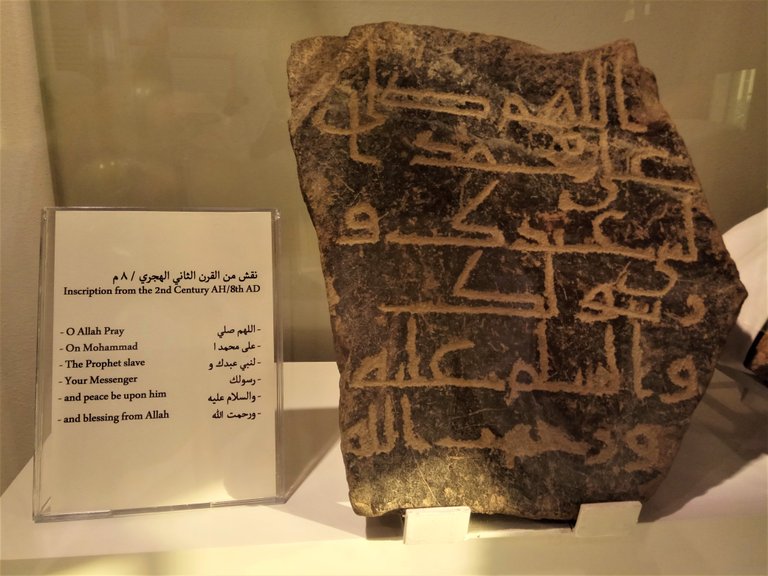 نقش من القرن الثاني الهجري / ٨ م
Inscription from the 2nd Century AH/8th AD
- O Allah Pray -اللهم صلي
- On Mohammad -على محمد ا
- The Prophet slave -لنبي عبدك و
- Your Messenger -رسولك
- and peace be upon him -والسلام عليه
- and blessing from Allah -ورحمت الله
اللهم صلى
على محمد ا
لنبى عبدك و
رسولك
والسلم عليه
ورحمت الله